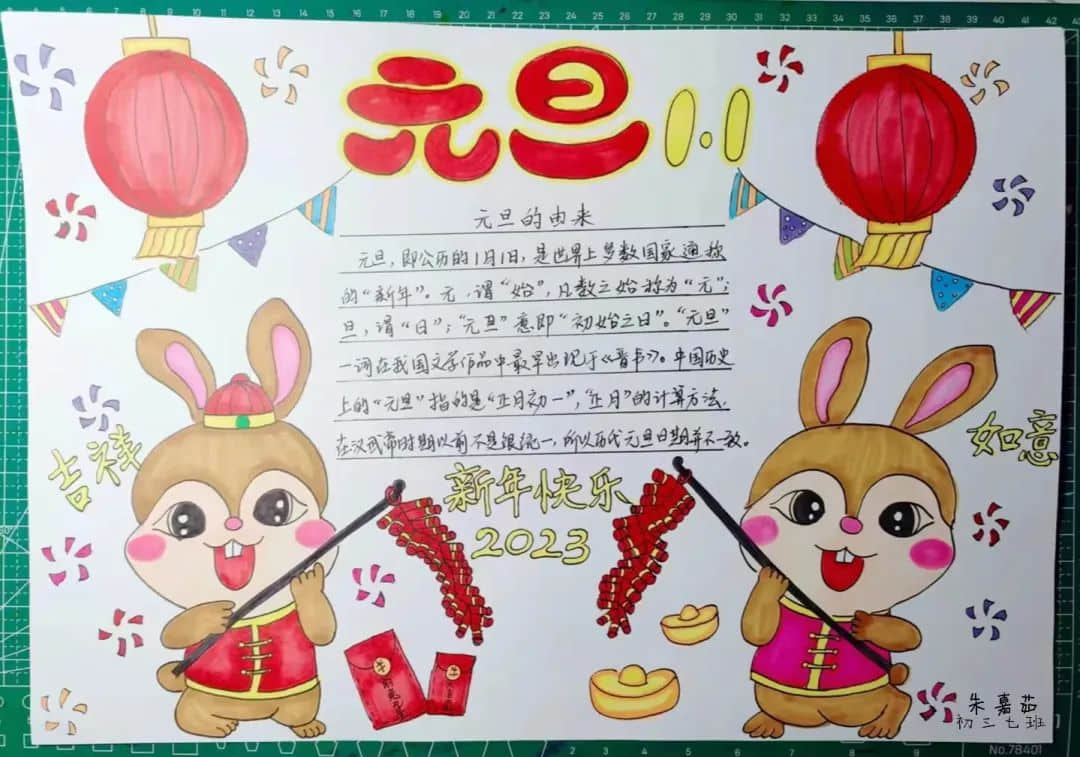 元旦 1.1
元旦的由来
元旦，即公历的1月1日，是世界上多数国家通称
的“新年”。元，谓“始”，凡数之始称为“元”；
旦，谓“日”；“元旦”意即“初始之日”。“元旦”
一词在我国文学作品中最早出现于《晋书》。中国历史
上的“元旦”指的是“正月初一”，“正月”的计算方法，
在汉武帝时期以前不是很统一，所以历代元旦日期并不一致。
吉祥
如意
新年快乐
2023
朱嘉茹
初三七班
No.78401